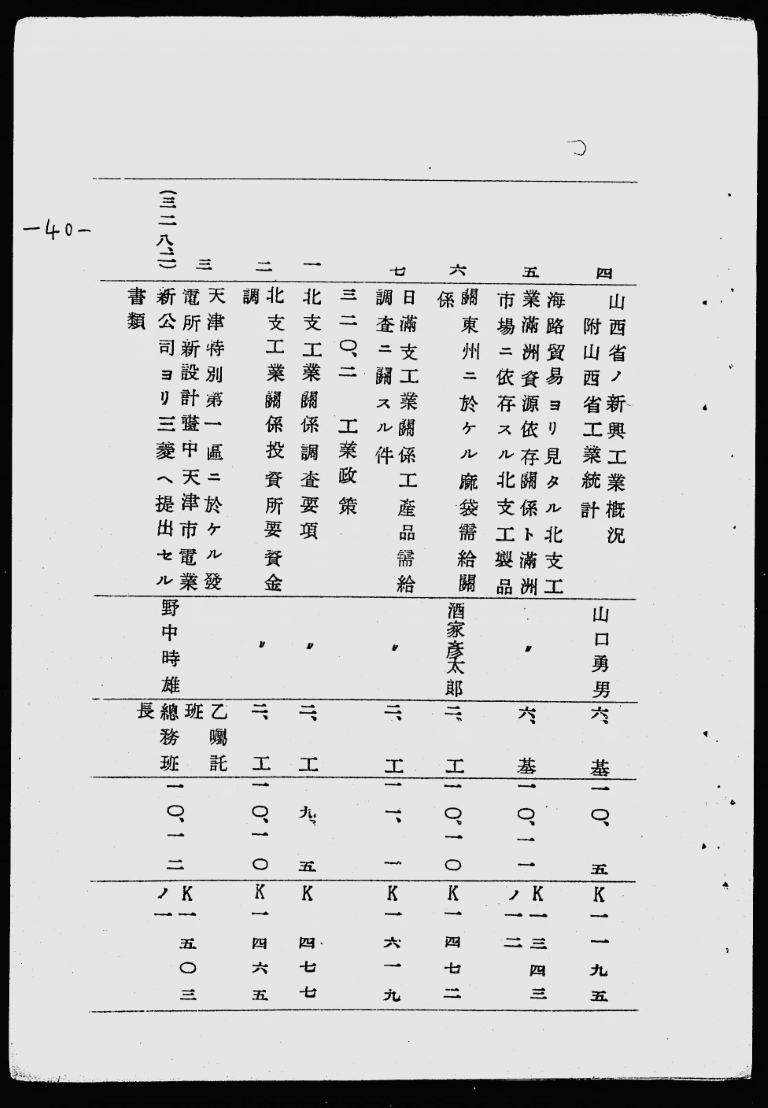 —40—
四
山西省ノ新興工業概況
附山西省工業統計
山口勇男
六、基
一〇、五
K一一九五
五
海路貿易ヨリ見タル北支工
業滿洲資源依存關係ト滿洲
市場ニ依存スル北支工製品
〃
六、基
一〇、二一
K一三四三
ノ一二
六
關東州ニ於ケル麻袋需給關
係
酒家彥太郎
二、工
一〇、一〇
K一四七二
七
日滿支工業關係工產品需給
調査ニ關スル件
〃
二、工
一一、一
K一六一九
三二〇、二　工業政策
一
北支工業關係調査要項
〃
二、工
九、五
K四七七
二
北支工業關係投資所要資金
調
〃
二、工
一〇、一〇
K一四六五
三
天津特別第一區ニ於ケル發
電所新設計畫中天津市電業
新公司ヨリ三菱ヘ提出セル
書類
(三二八、二)
野中時雄
乙囑託
班
總務班
長
一〇、一二
K一五〇三
ノ一